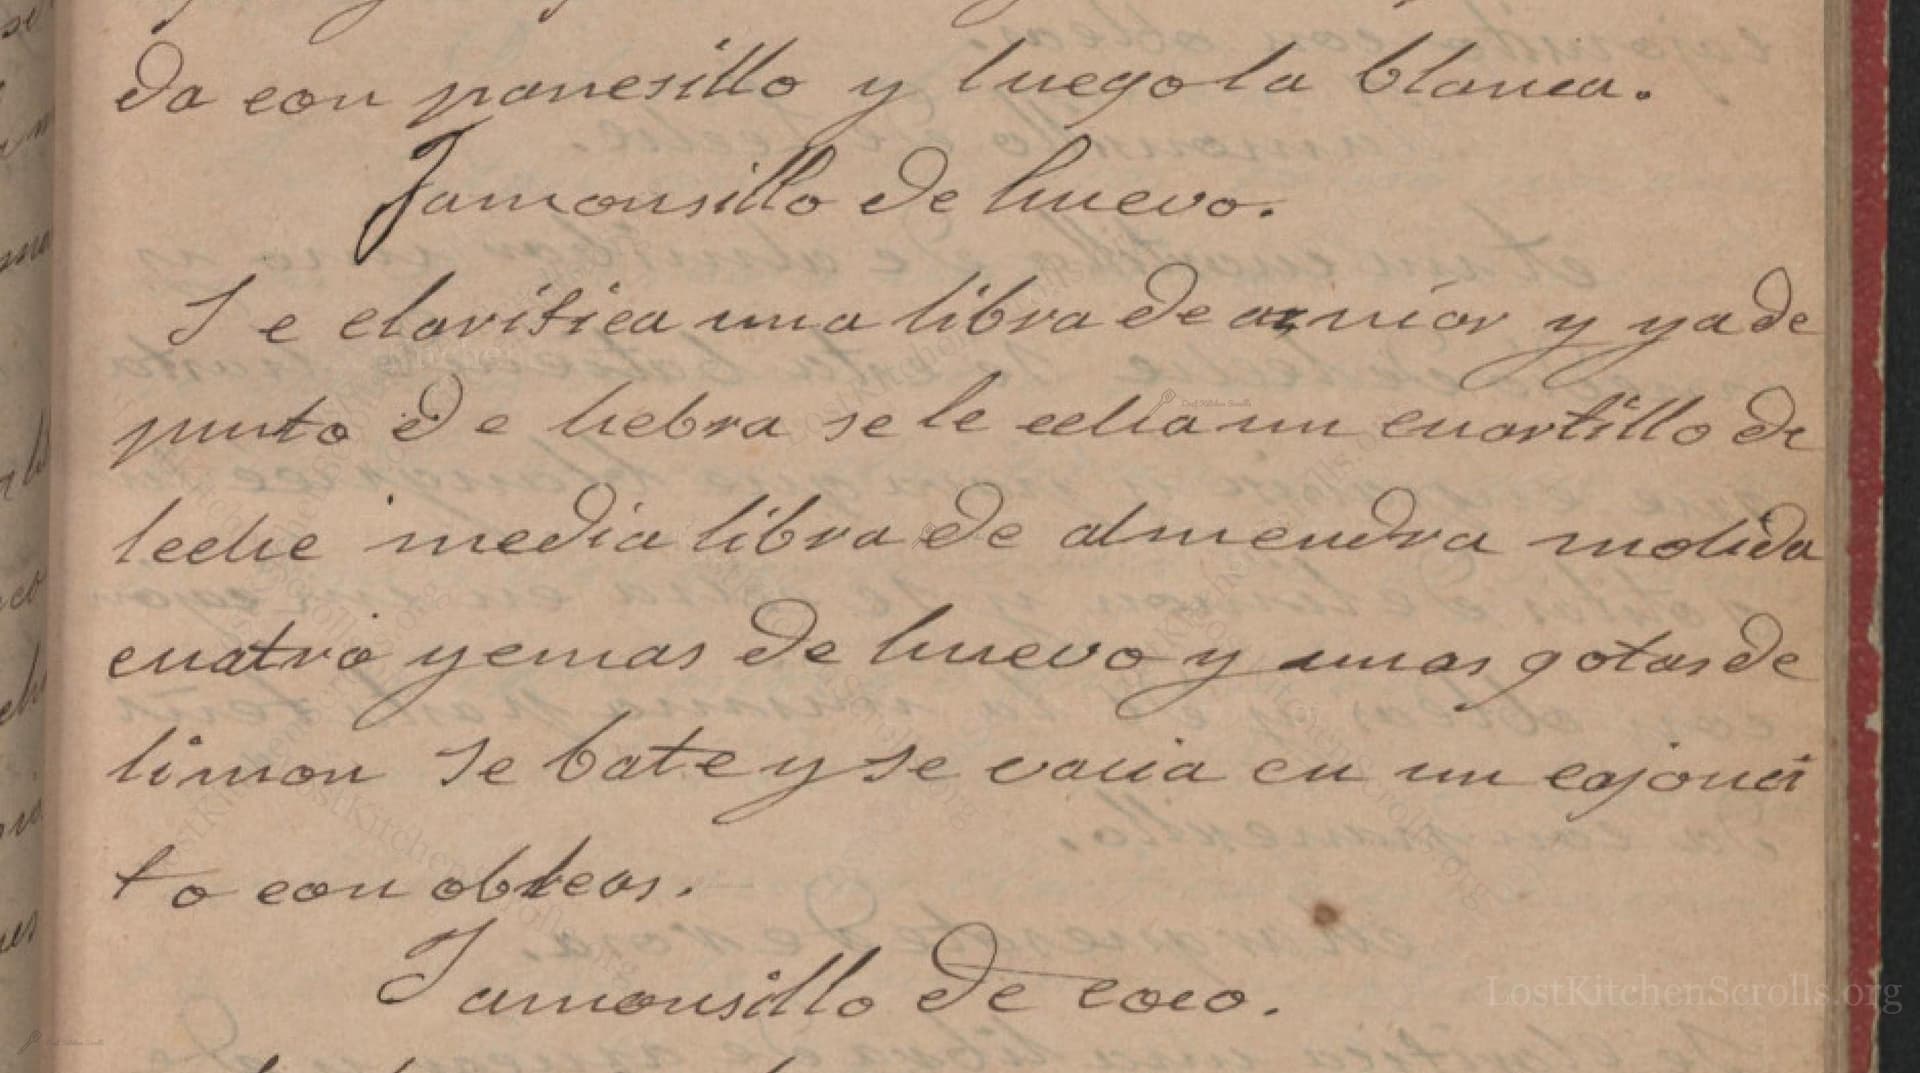 da con panesillo y luego la blanca.
Jamonsillo de huevo.
Se clarifica una libra de y ya de
punto de hebra se le echa un cuartillo de
leche media libra de almendra molida
cuatro yemas de huevo y unas gotas de
limon se bate y se vacia en un cajonci
to con obleas.
Jamonsillo de coco.
LostKitchenScrolls.org